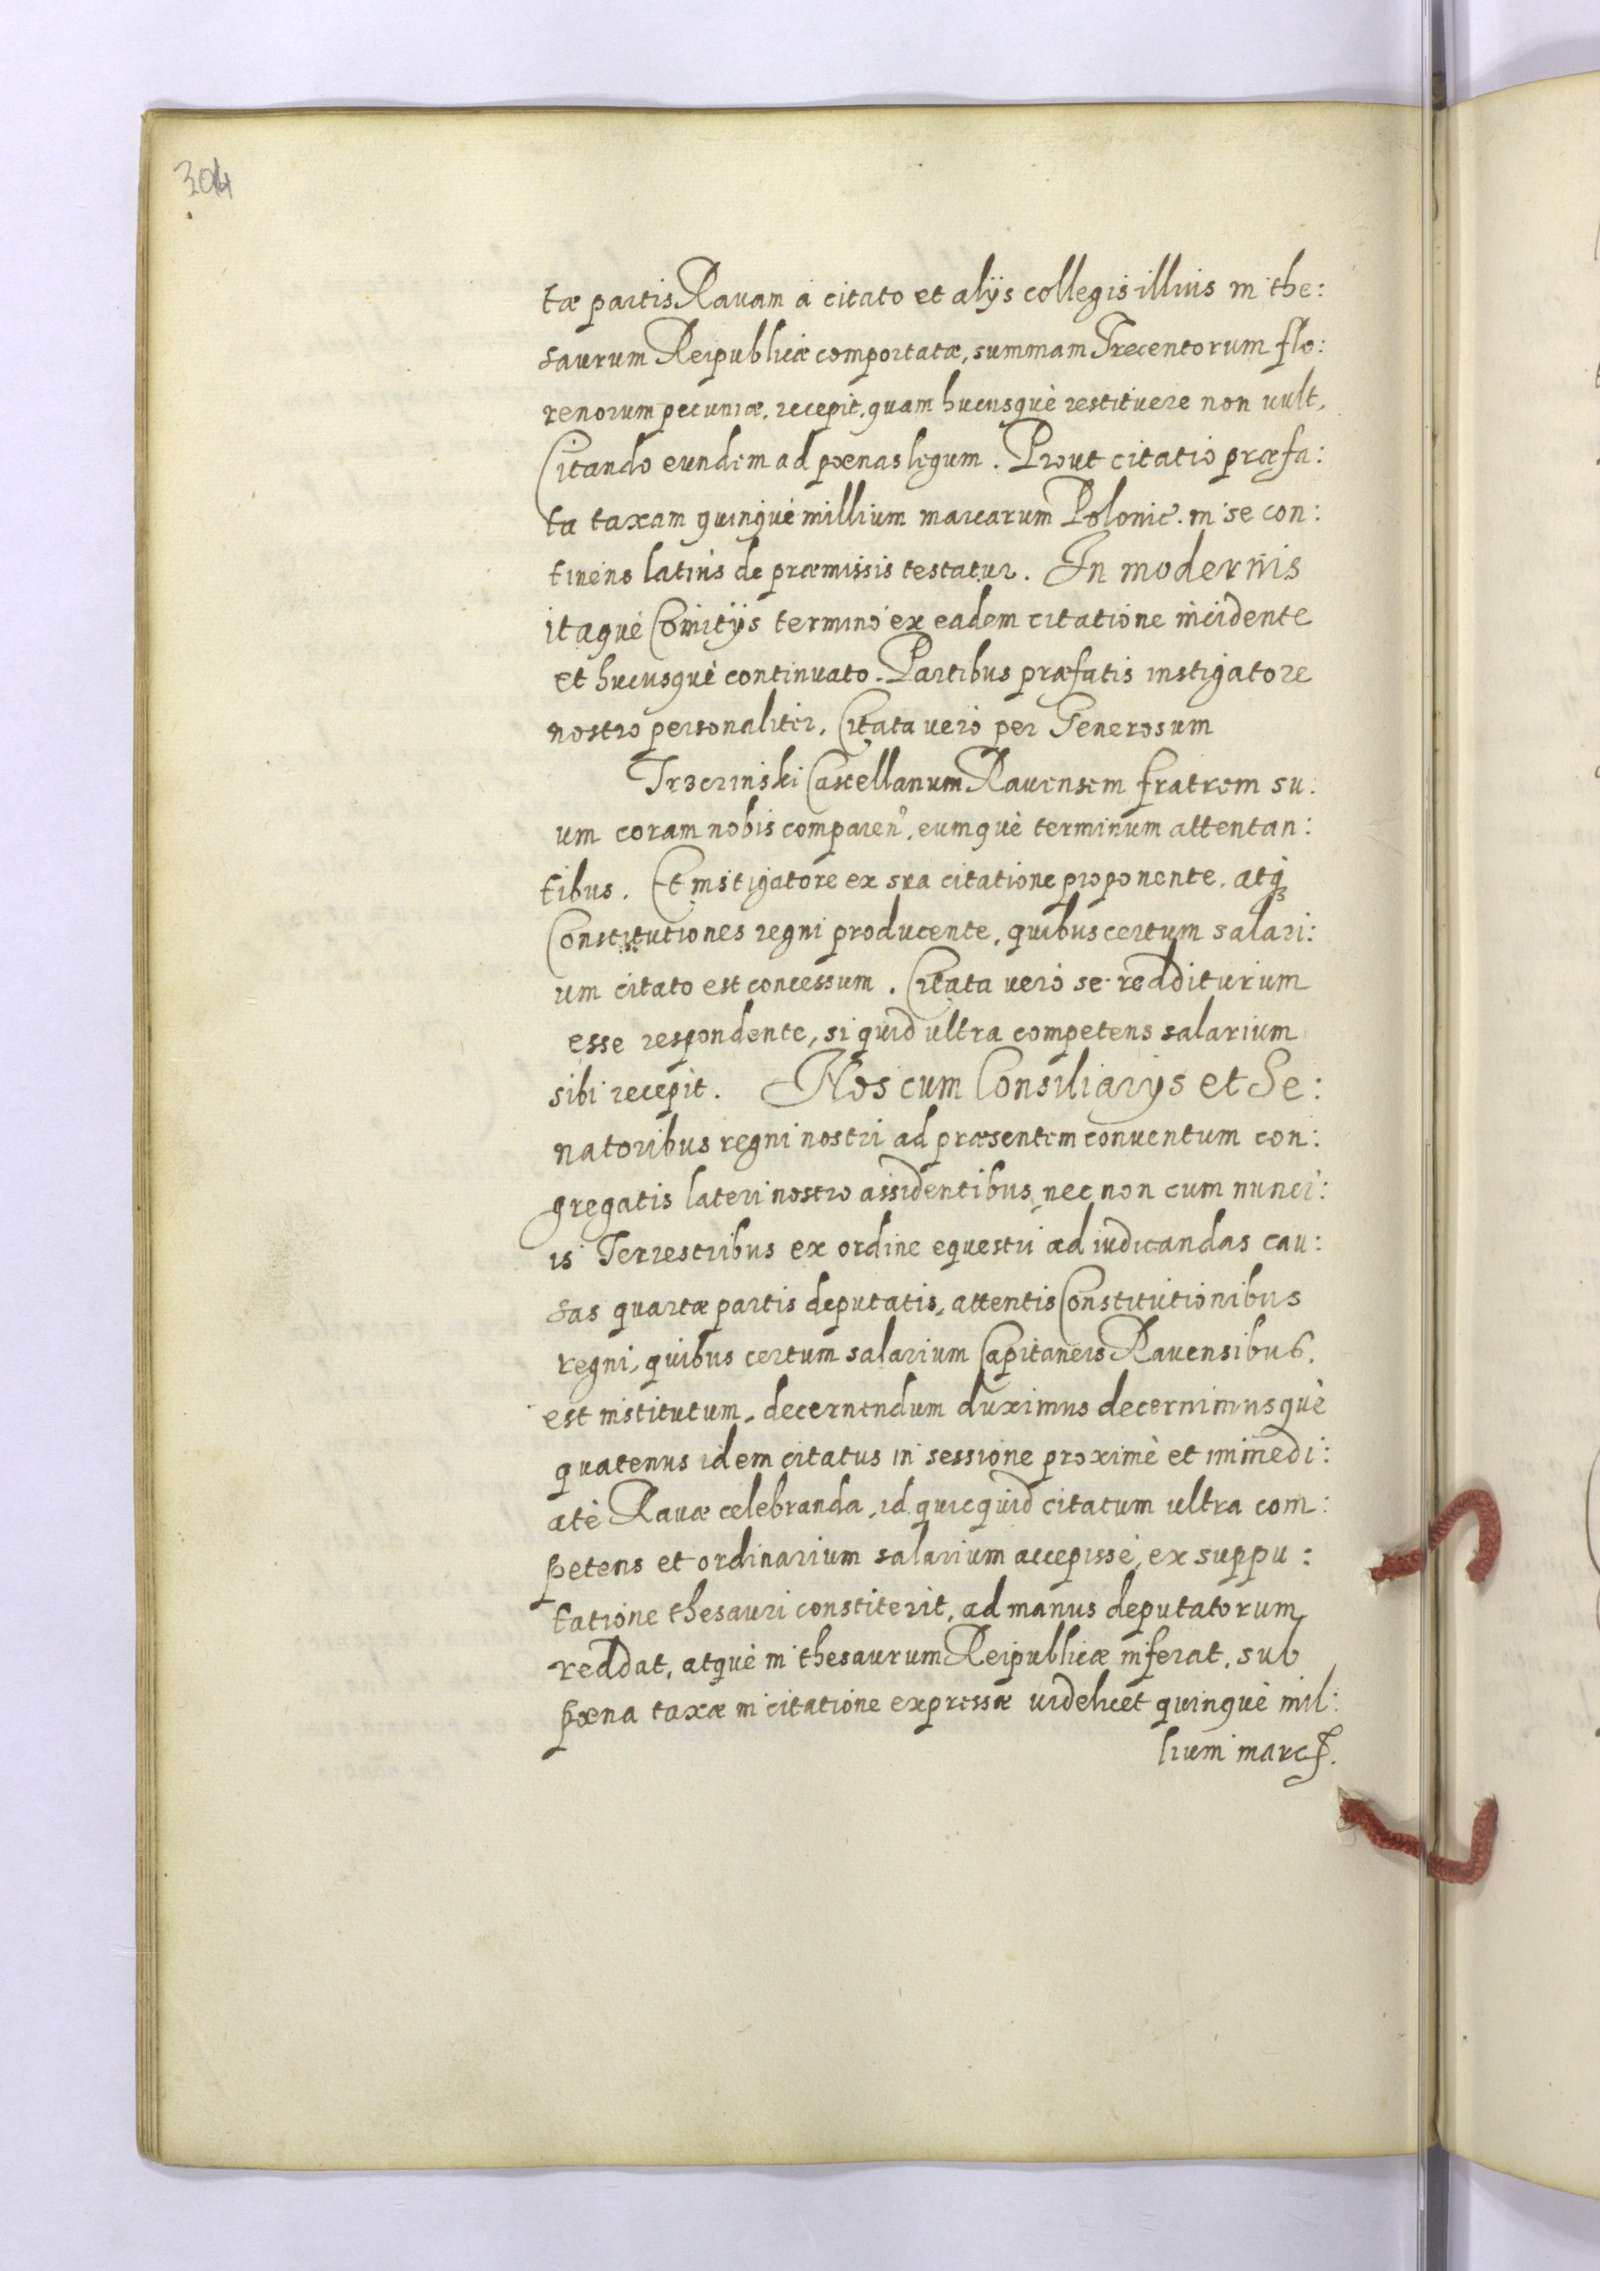 304
tæ partis Rauam à citato et alijs collegis illius in the:
saurum Reipublicæ comportatæ, summam Trecentorum flo:
renorum pecuniæ, recepit, quam hucusquè restituere non uult,
Citando eundem ad pœnas legum. Prout citatio præfa:
ta taxam quinquè millium marcarum Polonic. in se con:
tinens latius de præmissis testatur. In modernis
itaquè Comitijs termino ex eadem citatione incidente
et hucusquè continuato. Partibus præfatis instigatore
nostro personaliter, Citata uerò per Generosum
Trzcinski Castellanum Rauensem fratrem su:
um coram nobis comparen̄, eumquè terminum attentan:
tibus. Et instigatore ex sua citatione proponente, atq₃
Constitutiones regni producente, quibus certum salari:
um citato est concessum. Citata uerò se redditurum
esse respondente, si quid ultra competens salarium
sibi recepit. Nos cum Consiliarijs et Se:
natoribus regni nostri ad præsentem conuentum con:
gregatis lateri nostro assidentibus, nec non cum nunci:
is Terrestribus ex ordine equestri ad iudicandas cau:
sas quartæ partis deputatis, attentis Constitutionibus
regni, quibus certum salarium Capitaneis Rauensibus.
est institutum, decernendum duximus decernimusquè
quatenus idem citatus in sessione proximè et immedi:
atè Rauæ celebranda, id quicquid citatum ultra com:
petens et ordinarium salarium accepisse, ex suppu:
tatione thesauri constiterit, ad manus deputatorum
reddat, atquè in thesaurum Reipublicæ inferat, sub
pœna taxæ in citatione expressæ uidelicet quinquè mil:
lium marcꝭ.